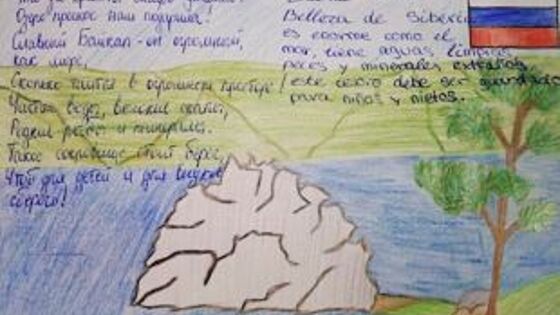 Озеро нам
Славный Байкал - он огромный,
как море,
Сколько таится в огромном просторе
Чистые воды, великие скалы,
Редкие рыбы и минералы.
Такое сокровище стоит
Чтоб для детей и для внуков
Belleza de Siberia
es enorme como el
mar, tiene aguas limpias
peces y minerales extraños,
este debe ser guardado
para niños y nietos.